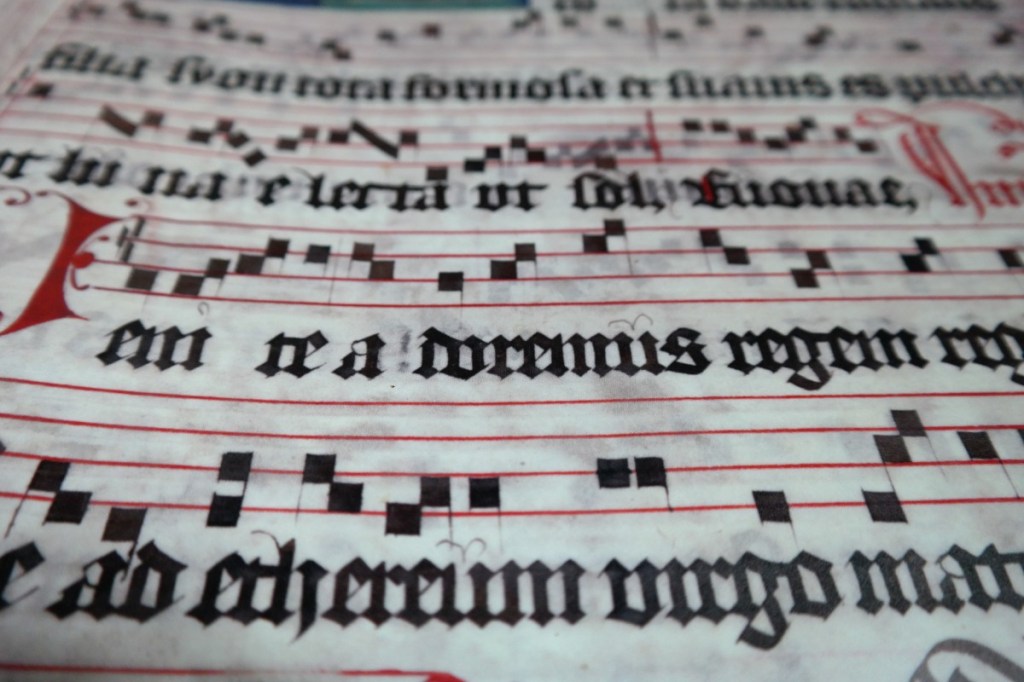 filia syon tota formosa et suauis es pulcr
ut lu na e lecta ut sol, Euouae,
eni te a doremus regem reg
e ad ethereum uirgo mat